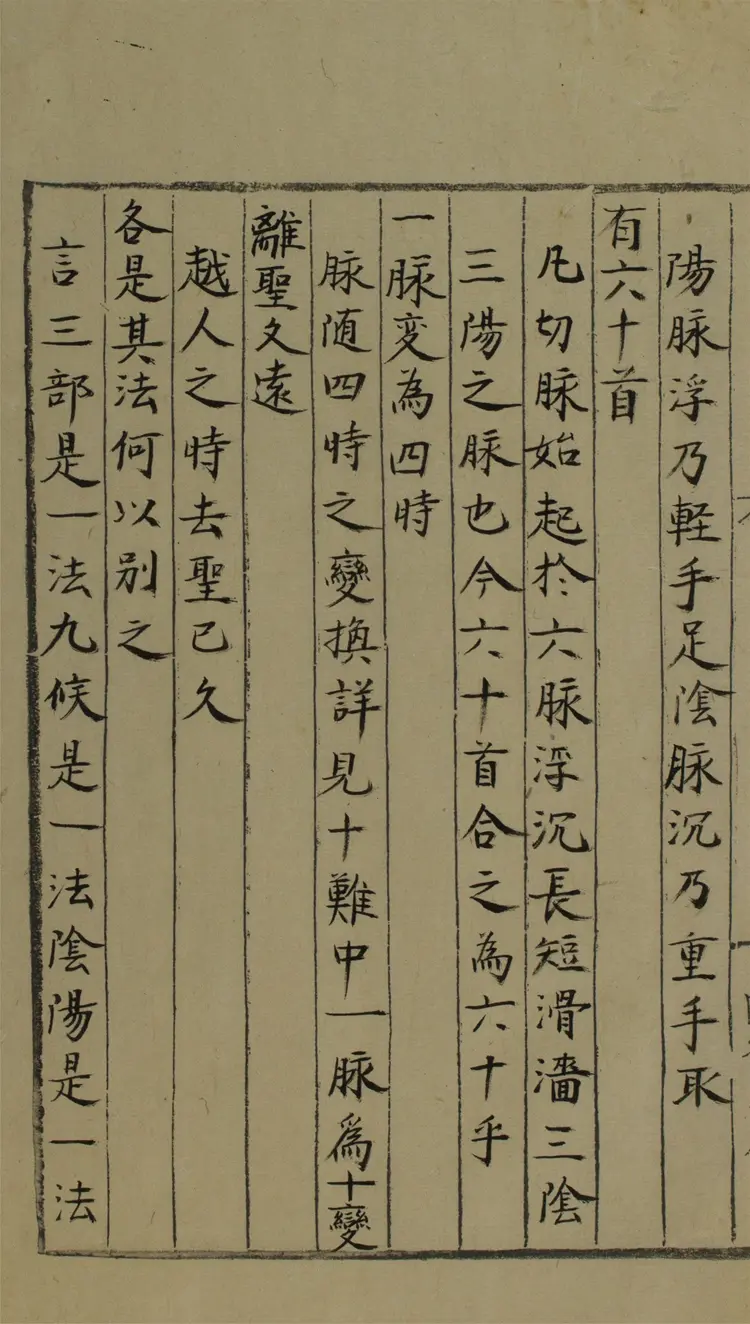 陽脉浮乃軽手足陰脉沉乃重手取
有六十首
凡切脉始起於六脉浮沉長短滑濇三陰
三陽之脉也今六十首合之為六十乎
一脉変為四時
脉随四時之變換詳見十難中一脉為十變
離聖文遠
越人之時去聖已久
各是其法何以别之
言三部是一法九候是一法陰陽是一法